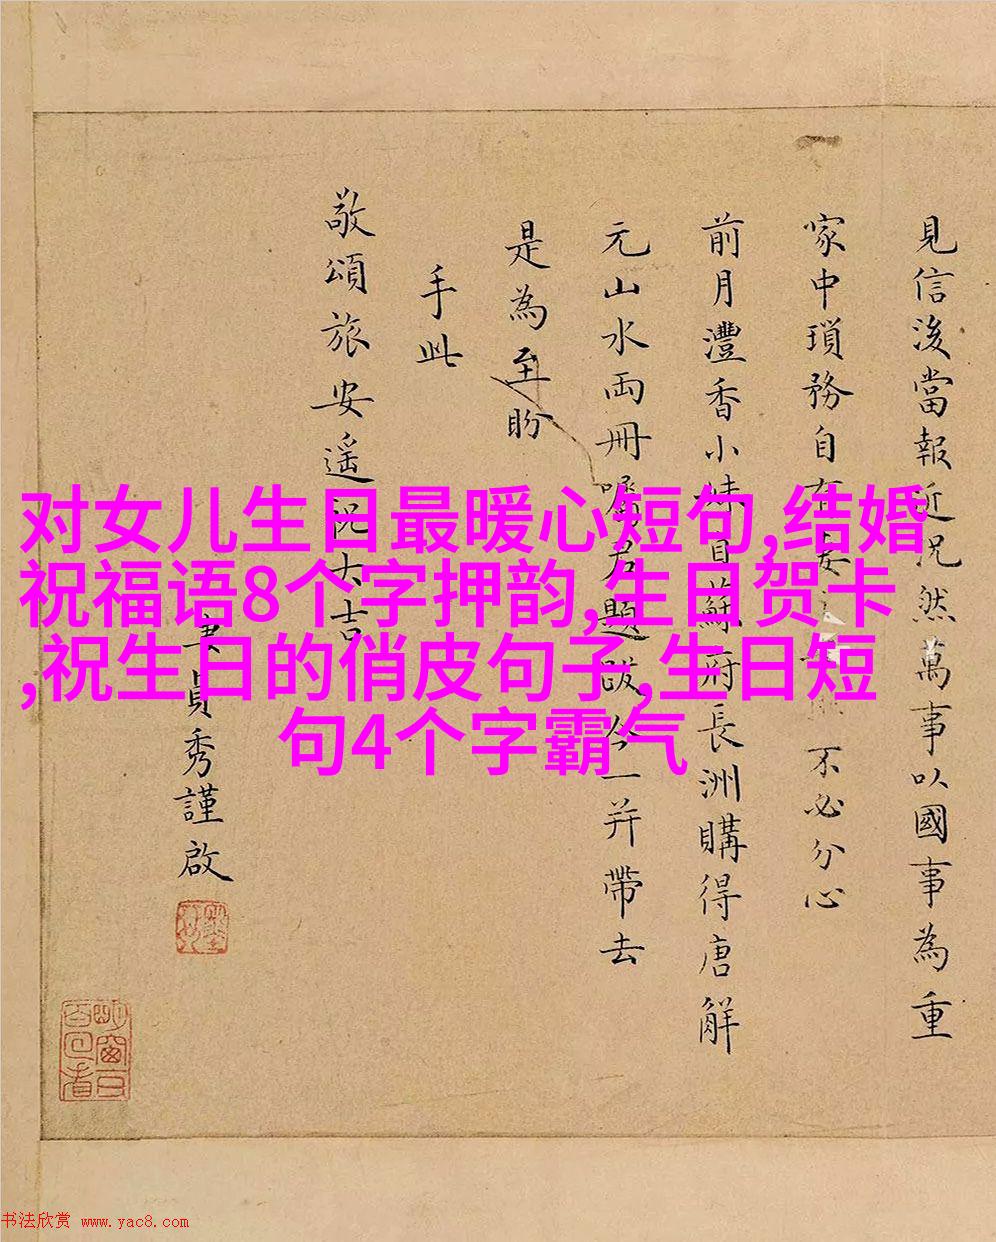 見信後當報近況然萬事以國事為重
家中瑣務自有妾 不必分心
前月灃香小妹自蘇府長洲購得唐解
元山水兩冊囑君題跋今一并帶去
是為至盼
手此
敬頌旅安遥祝大吉
妻貞秀謹啟
对女儿生日最暖心短句,结婚
祝福语8个字押韵,生日贺卡
,祝生日的俏皮句子,生日短
句4个字霸气
书法欣赏 www.yac8.com